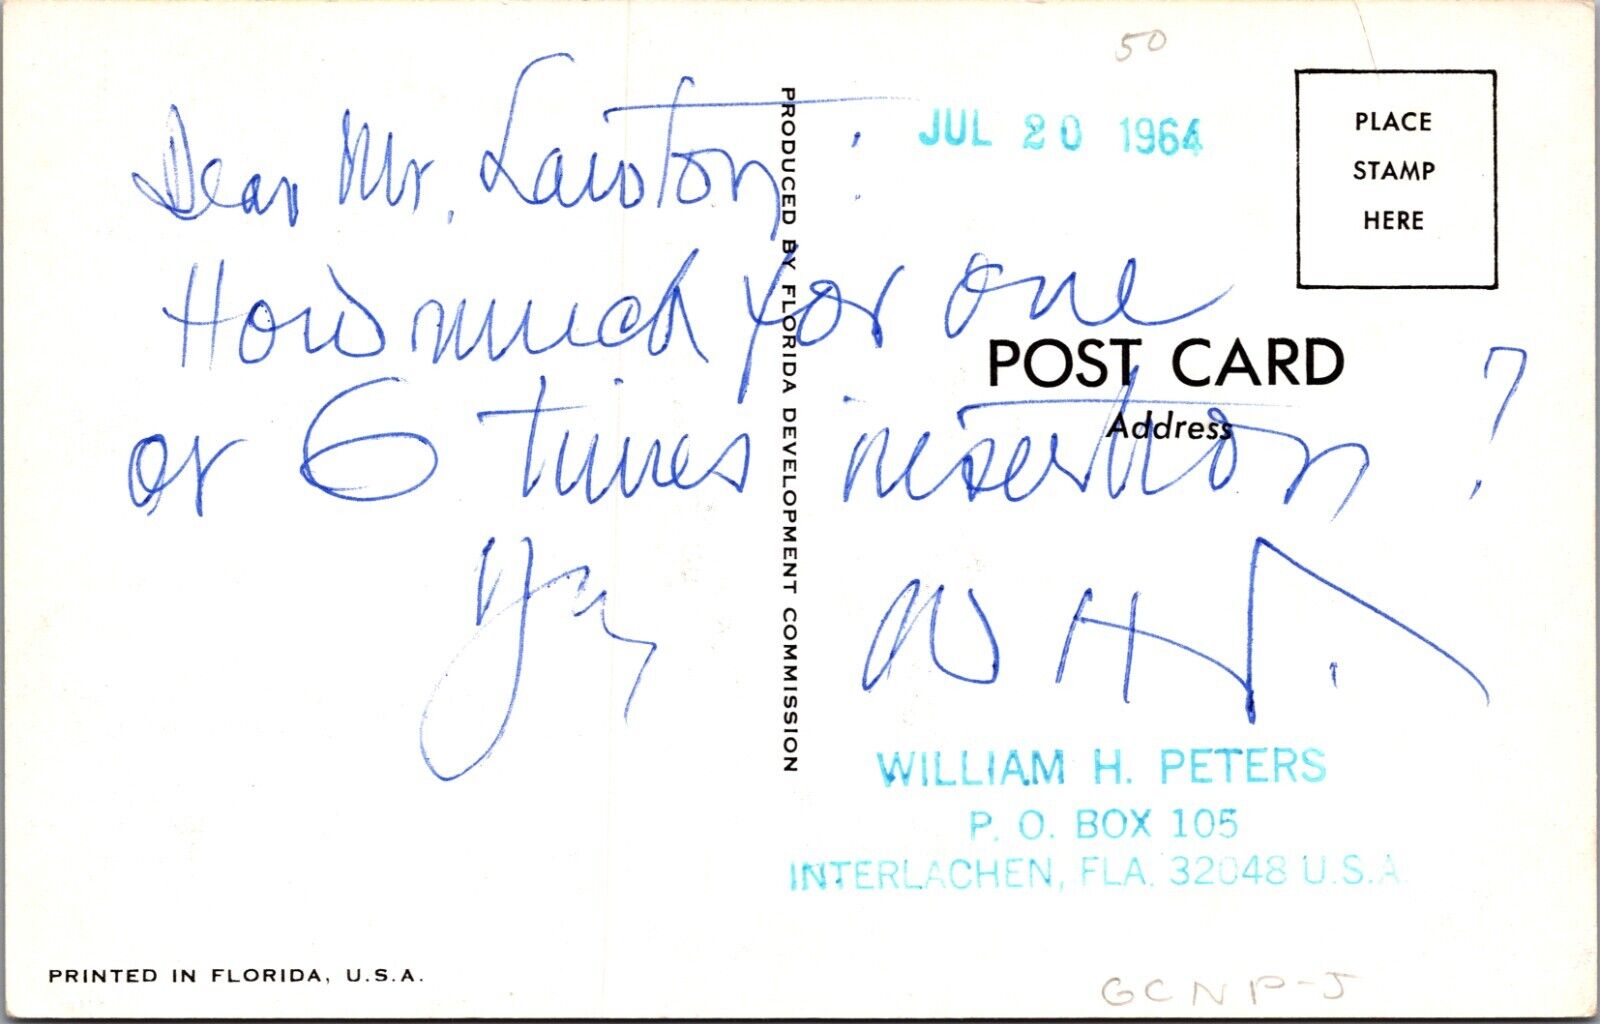 50
JUL 20 1964
PLACE
STAMP
HERE
Dear Mr. Lawton:
How much for one
or 6 times insertion?
W H P.
POST CARD
Address
PRODUCED BY FLORIDA DEVELOPMENT COMMISSION
WILLIAM H. PETERS
P. O. BOX 105
INTERLACHEN, FLA. 32048 U.S.A.
PRINTED IN FLORIDA, U.S.A.
GCNP-J